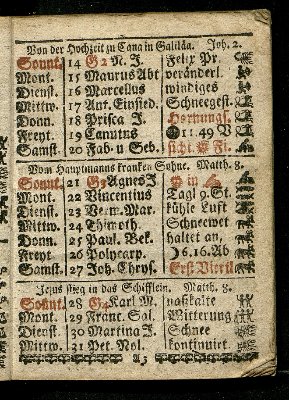 Von der Hochzeit zu Cana in Galiläa. Joh. 2.
Sonnt. 14 G2 N. J. Felix Pr.
Mont. 15 Maurus Abt veränderl.
Dienst. 16 Marcellus windiges
Mittw. 17 Ant. Einsied. Schneegest.
Donn. 18 Prisca J. Hornungs-
Freyt. 19 Canutus 11.49 V
Samst. 20 Fab. u Seb. Fi.
Vom Hauptmanns kranken Sohne. Matth. 8.
Sonnt. 21 G3 Agnes J in
Mont. 22 Vincentius Tagl 9. St.
Dienst. 23 Verm. Mar. kühle Luft
Mittw. 24 Thimoth. Schneewet
Donn. 25 Paul. Bek. haltet an,
Freyt 26 Polycarp. 6.16. Ab
Samst. 27 Joh. Chrys. Erst Viertl
Jesus stieg in das Schifflein. Matth. 8.
Sonnt. 28 G4 Karl M. naßkalte
Mont. 29 Franc. Sal. Witterung
Dienst. 30 Martina J. Schnee
Mittw. 31 Pet. Nol. kontinuirt.
A3